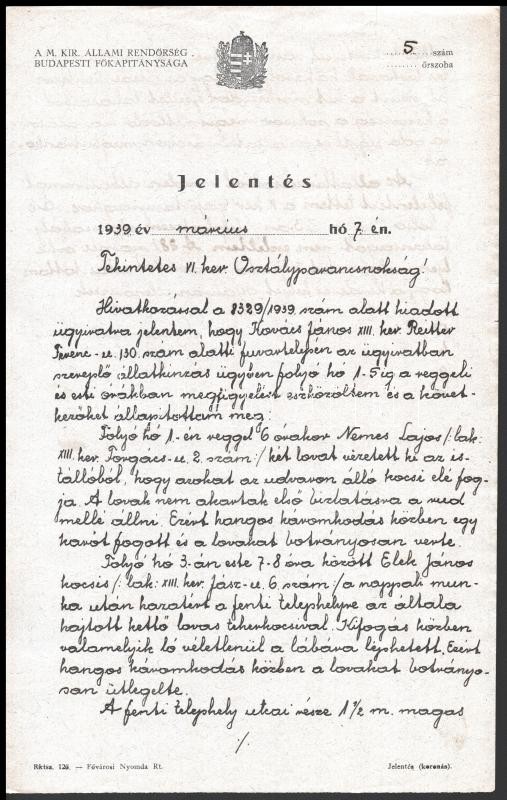 A M. KIR. ÁLLAMI RENDŐRSÉG
BUDAPESTI FŐKAPITÁNYSÁGA
5 szám
őrszoba
Jelentés
1939 év március hó 7 én.
Tekintetes VI. ker. Osztályparancsnokság!
Hivatkozással a 8329/1939. szám alatt kiadott
ügyiratra jelentem, hogy Kovács János XIII. ker. Reitter
Ferenc-u. 130. szám alatti fuvartelepén az ügyiratban
szereplő állatkínzás ügyében folyó hó 1-5 ig a reggeli
és esti órákban megfigyelést eszközöltem és a követ-
kezőket állapítottam meg:
Folyó hó 1.-én reggel 6 órakor Nemes Lajos /: lak:
XIII. ker. Forgács-u. 2. szám :/ két lovat vezetett ki az is-
tállóból, hogy azokat az udvaron álló kocsi elé fog-
ja. A lovak nem akartak első biztatásra a rud
mellé állni. Ezért hangos káromkodás közben egy
karót fogott és a lovakat botrányosan verte.
Folyó hó 3.-án este 7-8 óra között Elek János
kocsis /: lak: XIII. ker. Jász-u. 6. szám :/ a nappali mun-
ka után hazatért a fenti telephelyre az általa
hajtott kettő lovas teherkocsival. Kifogás közben
valamelyik ló véletlenül a lábára léphetett. Ezért
hangos káromkodás közben a lovakat botrányo-
san ütlegelte.
A fenti telephely utcai része 1 1/2 m. magas
./.
Rktsz. 126. — Fővárosi Nyomda Rt.
Jelentés (koronás).